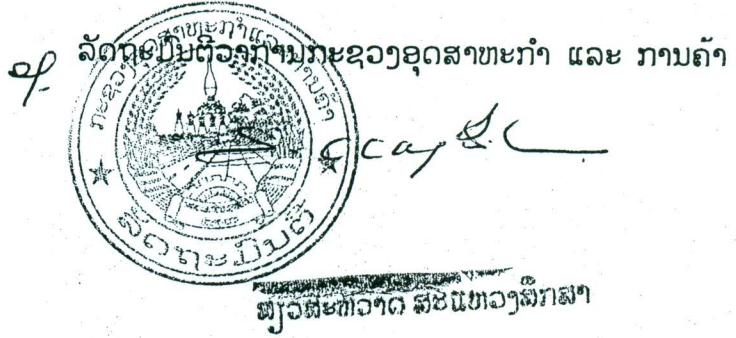 ລັດຖະມົນຕີວ່າການກະຊວງອຸດສາຫະກຳ ແລະ ການຄ້າ
ກະຊວງອຸດສາຫະກຳ ແລະ ການຄ້າ
ລັດຖະມົນຕີ
ສຽວສະຫວາດ ສະແຫວງສຶກສາ